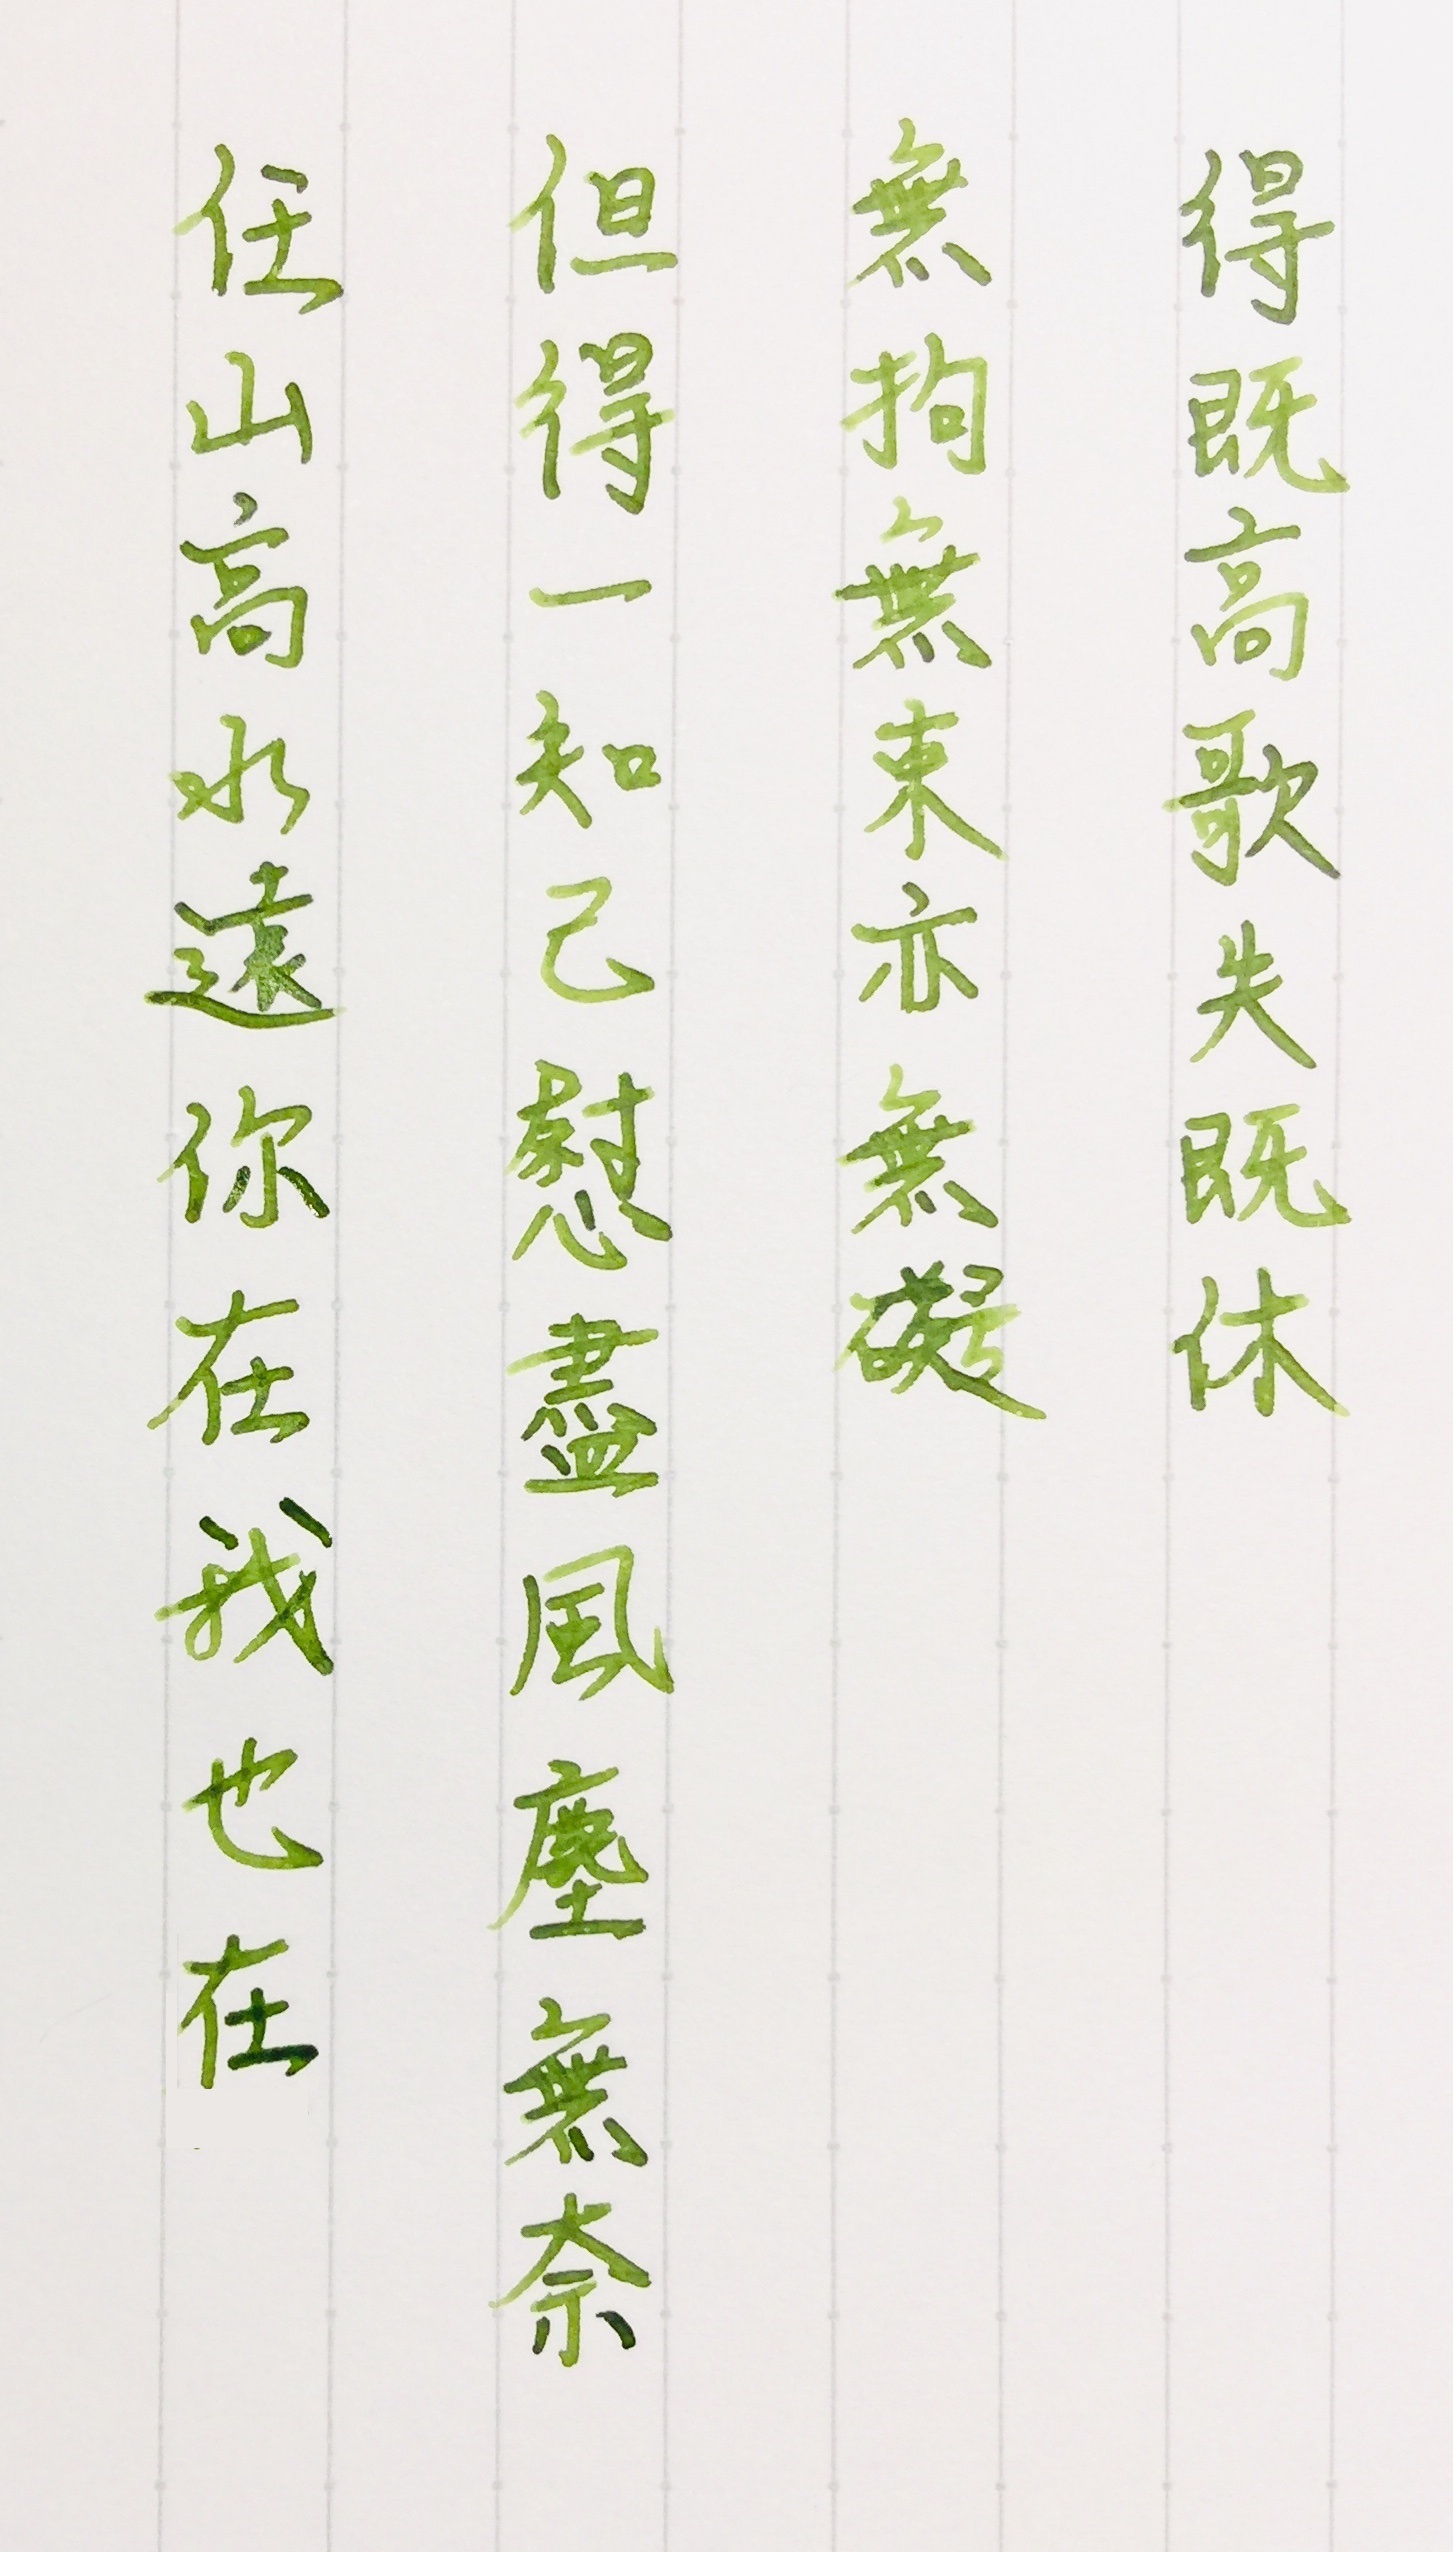 得既高歌失既休
無拘無束亦無礙
但得一知己慰盡風塵無奈
任山高水遠你在我也在